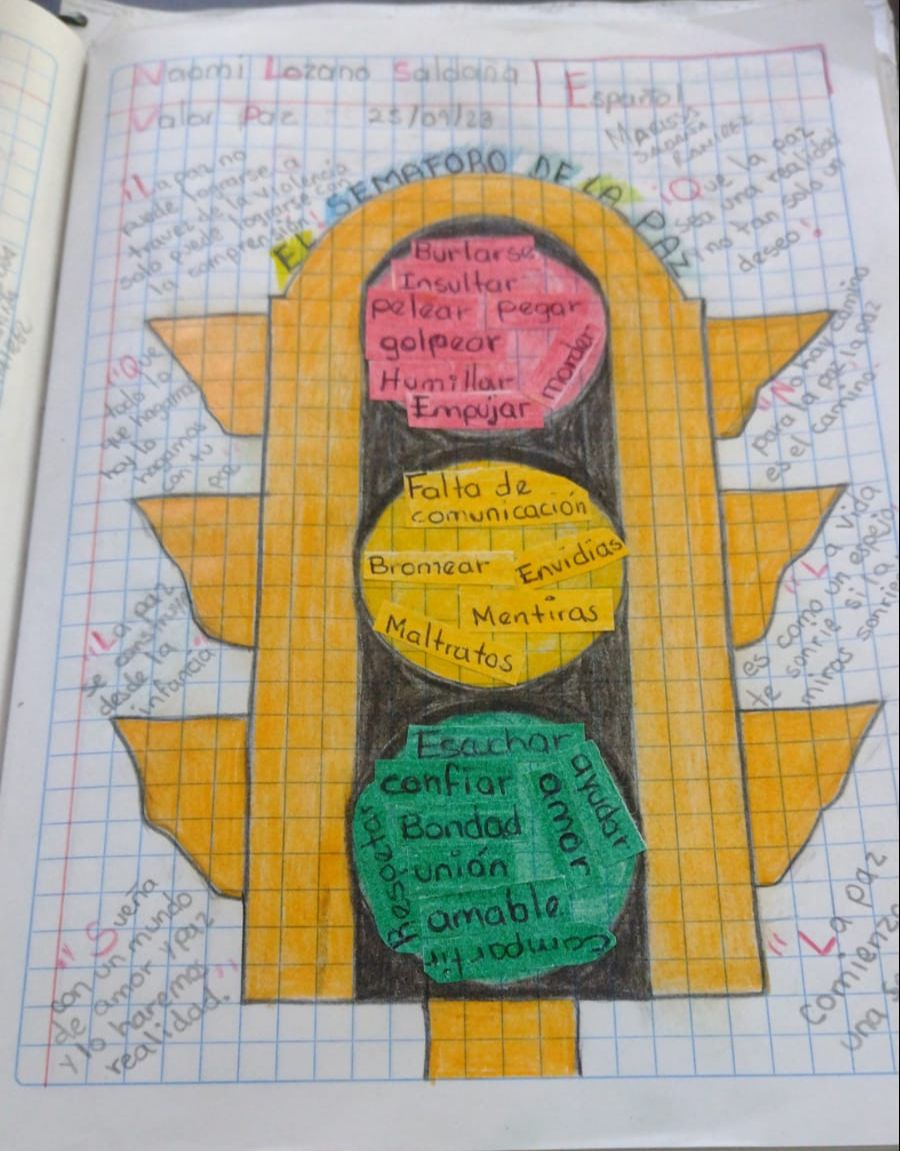 Naomi Lozano Saldaña
Español
Valor Paz 25/09/23
MARISSA
SALDAÑA
RAMIREZ
EL SEMAFORO DE LA PAZ
"La paz no
puede lograrse a
travez de la violencia
solo puede lograrse con
la comprensión!
¡Que la paz
sea una realidad
y no tan solo un
deseo!
Burlarse
Insultar
pelear pegar
golpear
morder
Humillar
Empujar
"Que
todo lo
que hagamos
hoy lo
hagamos
con tu
paz"
"No hay camino
para la paz, la paz
es el camino.
Falta de
comunicación
Bromear
Envidias
Mentiras
Maltratos
"La paz
se construye
desde la
infancia"
"La vida
es como un espejo
te sonrie si la
miras sonrie
Escuchar
confiar
ayudar
amor
Bondad
Respetar
unión
amable
compartir
"Sueña
con un mundo
de amor y paz
y lo harema
realidad."
"La paz
comienza
una